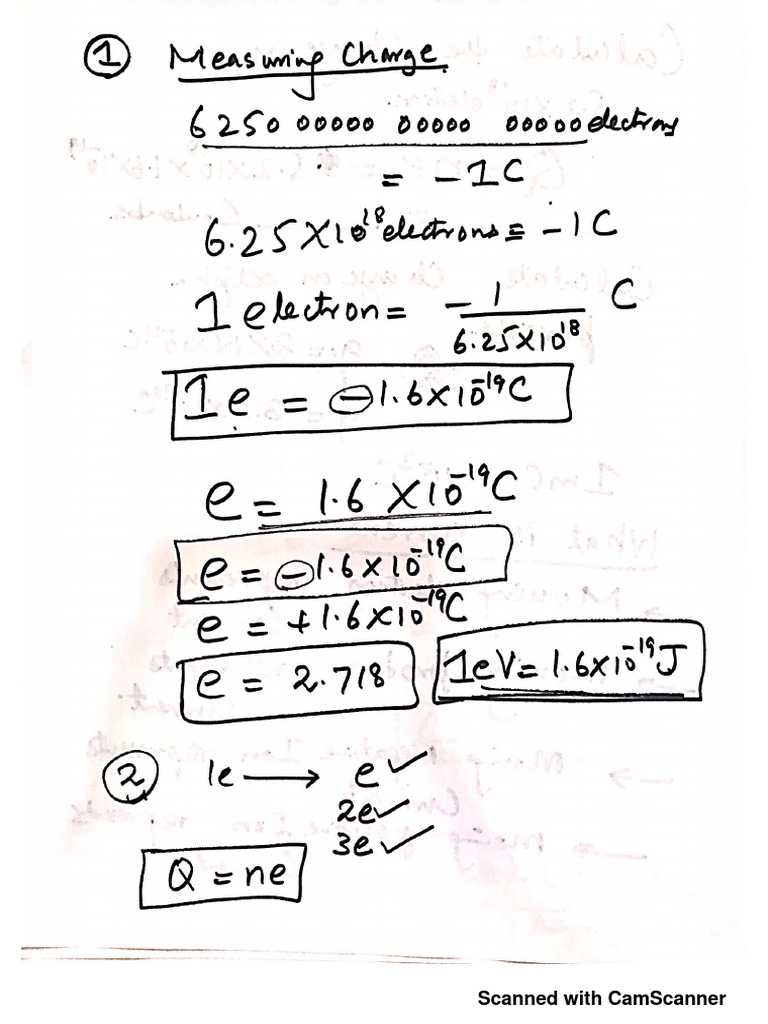 ① Measuring Charge
6250 00000 00000 00000 electrons
= -1C
6.25×10¹⁸ electrons = -1C
1 electron = -1/6.25×10¹⁸ C
1e = -1.6×10⁻¹⁹C
e = 1.6×10⁻¹⁹C
e = -1.6×10⁻¹⁹C
e = +1.6×10⁻¹⁹C
e = 2.718
1eV = 1.6×10⁻¹⁹J
② 1e → e ✓
2e ✓
3e ✓
Q = ne
Scanned with CamScanner